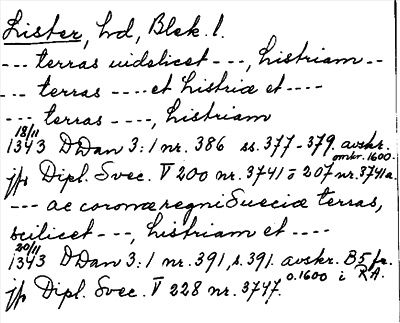 Lister, hd, Blek. l.
--- terras uidelicet ---, histriam --
--- terras ---- et histriæ et ----
--- terras ----, histriam
18/11
1343 DDan 3:1 nr. 386 ss. 377-379. avskr.
omkr. 1600.
jfr Dipl. Svec. V 200 nr. 3741 o 207 nr. 3741a.
--- ac coronæ regni Sueciæ terras,
scilicet ---, histriam et ----
20/11
1343 DDan 3:1 nr. 391, s. 391. avskr. B5 fr.
o. 1600 i RA.
jfr Dipl. Svec. V 228 nr. 3747.